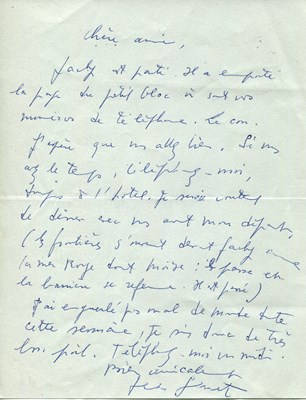 Chère amie,
Jacky est parti. Il a emporté
la page du petit bloc où sont vos
numéros de téléphone. Le con.
J'espère que vous allez bien. Si vous
avez le temps, téléphonez-moi,
toujours à l'hôtel. Je serais content
de dîner avec vous avant mon départ.
(Les frontières s'ouvrent devant Jacky comme
la mer Rouge devant Moïse : il passe et
la barrière se referme. Il est
J'ai engueulé pas mal de monde toute
cette semaine, je suis donc de très
bon poil. Téléphonez-moi un matin.
Bien amicalement
Jean Genet